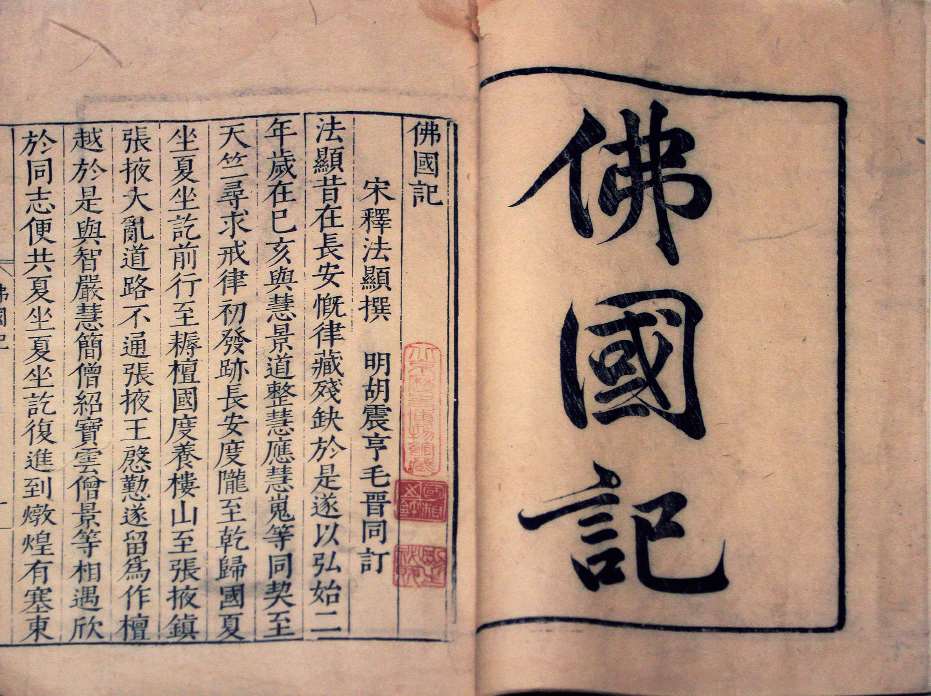 佛國記
佛國記
宋釋法顯撰 明胡震亨毛晉同訂
法顯昔在長安慨律藏殘缺於是遂以弘始二
年歲在己亥與慧景道整慧應慧嵬等同契至
天竺尋求戒律初發跡長安度隴至乾歸國夏
坐夏坐訖前行至耨檀國度養樓山至張掖鎮
張掖大亂道路不通張掖王慇懃遂留爲作檀
越於是與智嚴慧簡僧紹寶雲僧景等相遇欣
於同志便共夏坐夏坐訖復進到燉煌有塞東
佛國記